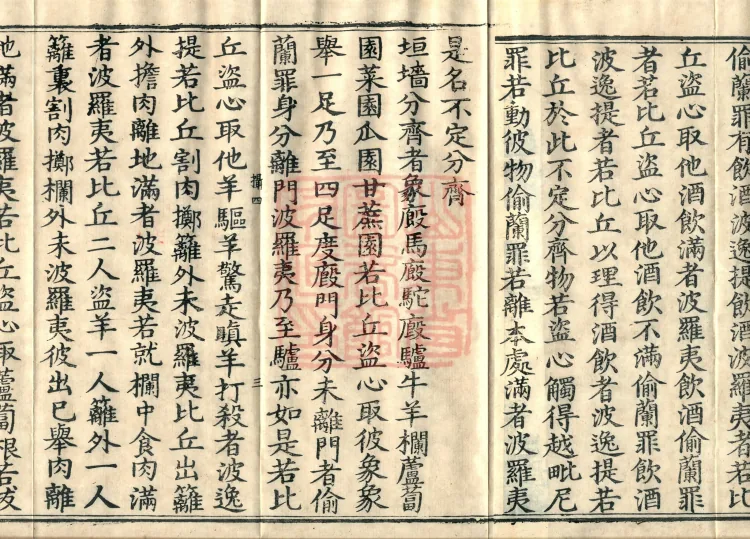 偷蘭罪有飲酒波逸提飲酒波羅夷者若比
丘盜心取他酒飲滿者波羅夷飲酒偷蘭罪
者若比丘盜心取他酒飲不滿偷蘭罪飲酒
波逸提者若比丘以理得酒飲者波逸提若
比丘於此不定分齊物若盜心觸得越毗尼
罪若動彼物偷蘭罪若離本處滿者波羅夷
是名不定分齊
垣墻分齊者象廄馬廄駝廄驢牛羊欄蘆蔔
園菜園瓜園甘蔗園若比丘盜心取彼象象
舉一足乃至四足度廄門身分未離門者偷
蘭罪身分離門波羅夷乃至驢亦如是若比
攝四
三
丘盜心取他羊驅羊驚走瞋羊打殺者波逸
提若比丘割肉擲籬外未波羅夷比丘出籬
外擔肉離地滿者波羅夷若就欄中食肉滿
者波羅夷若比丘二人盜羊一人籬外一人
籬裏割肉擲欄外未波羅夷彼出已舉肉離
地滿者波羅夷若比丘盜心取蘆蔔根若拔